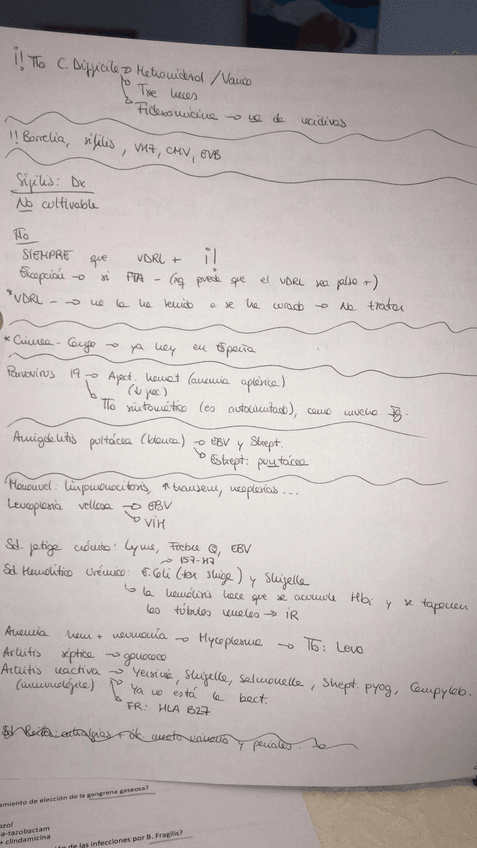 ¡! Tto C. Difficile → Metronidazol / Vanco
Txe heces
Fidaxomicina → ↓ de recidivas
!! Borrelia, sífilis, VHZ, CMV, EVB
Sífilis: Dx
No cultivable
Tto
SIEMPRE que VDRL + ¡!
Excepción → si FTA - (xq puede que el VDRL sea falso +)
*VDRL - → no la ha tenido o se ha curado → No tratar
*Crimea-Congo → ya hay en España
Parvovirus 19 → Afect. hemat (anemia aplásica)
Tto sintomático (es autolimitado), como mucho Ig.
Amigdalitis pultácea (blanca) → EBV y Strept.
Estrept: pultácea
Mononucl: linfomonocitosis, ↑ transam, neoplasias ...
Leucoplasia vellosa → EBV
VIH
Sd. fatiga crónica: Lyme, Fiebre Q, EBV
157-H7
Sd. Hemolítico Urémico: E. Coli (tox shiga) y Shigella
la hemólisis hace que se acumule Hb y se taponen
los túbulos renales → IR
Anemia hem + neumonía → Mycoplasma → Tto: Levo
Artritis séptica → gonococo
Artritis reactiva → Yersinia, Shigella, Salmonella, Strept. pyog, Campylob.
(inmunológica) Ya no está la bact.
FR: HLA B27
amiento de elección de la gangrena gaseosa?
azol
a-tazobactam
+ clindamicina
ón de las infecciones por B. Fragilis?